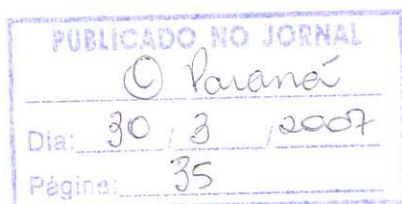 PUBLICADO NO JORNAL
O Paraná
Dia: 30 / 3 / 2007
Página: 35